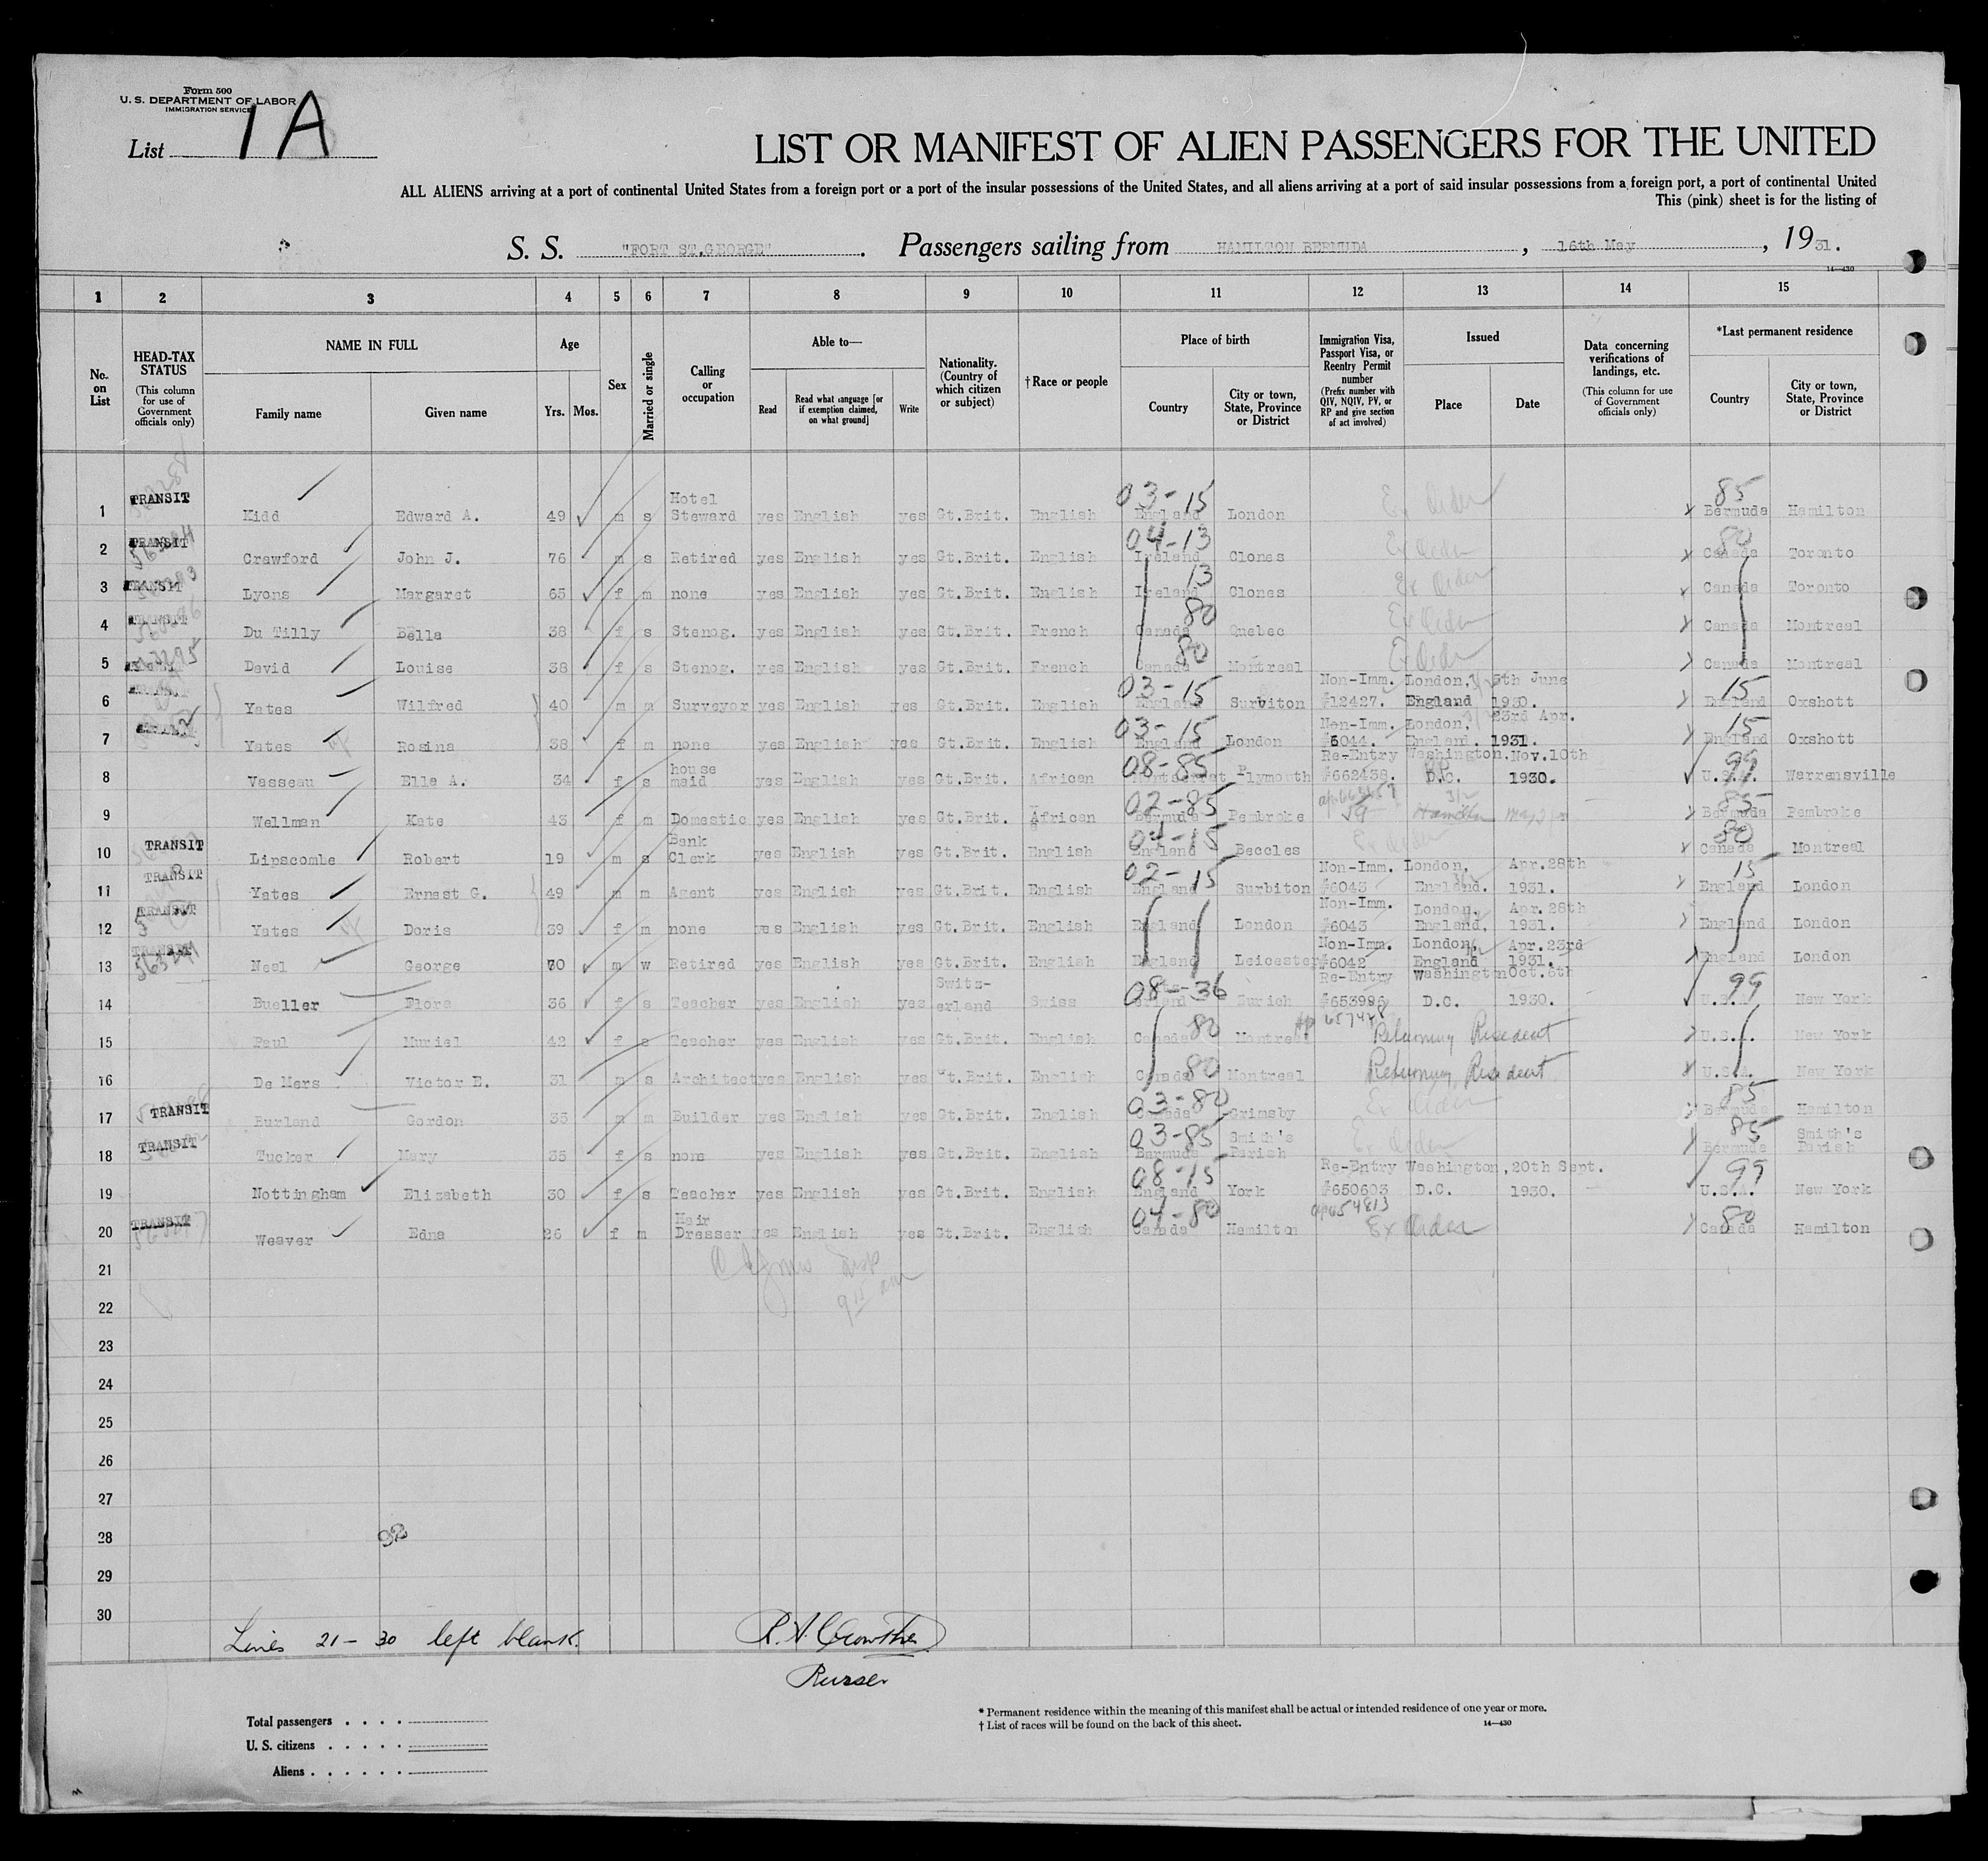 Form 500
U. S. DEPARTMENT OF LABOR
IMMIGRATION SERVICE
List 1A
LIST OR MANIFEST OF ALIEN PASSENGERS FOR THE UNITED
ALL ALIENS arriving at a port of continental United States from a foreign port or a port of the insular possessions of the United States, and all aliens arriving at a port of said insular possessions from a foreign port, a port of continental United
This (pink) sheet is for the listing of
S. S. "FORT ST.GEORGE". Passengers sailing from HAMILTON BERMUDA, 16th May, 1931.
14—430
1 2 3 4 5 6 7 8 9 10 11 12 13 14 15
No. on List
HEAD-TAX STATUS (This column for use of Government officials only)
NAME IN FULL Family name Given name
Age Yrs. Mos.
Sex
Married or single
Calling or occupation
Able to— Read Read what language [or if exemption claimed, on what ground] Write
Nationality. (Country of which citizen or subject)
†Race or people
Place of birth Country City or town, State, Province or District
Immigration Visa, Passport Visa, or Reentry Permit number (Prefix number with QIV, NQIV, PV, or RP and give section of act involved)
Issued Place Date
Data concerning verifications of landings, etc. (This column for use of Government officials only)
*Last permanent residence Country City or town, State, Province or District
1 TRANSIT Kidd Edward A. 49 m s Hotel Steward yes English yes Gt.Brit. English 03-15 England London Ex Order 85 Bermuda Hamilton
2 TRANSIT Crawford John J. 76 m s Retired yes English yes Gt.Brit. English 04-13 Ireland Clones Ex Order 80 Canada Toronto
3 TRANSIT Lyons Margaret 65 f m none yes English yes Gt.Brit. English 13 Ireland Clones Ex Order Canada Toronto
4 TRANSIT Du Tilly Bella 38 f s Stenog. yes English yes Gt.Brit. French 80 Canada Quebec Ex Order Canada Montreal
5 David Louise 38 f s Stenog. yes English yes Gt.Brit. French 80 Canada Montreal Ex Order Canada Montreal
6 Yates Wilfred 40 m m Surveyor yes English yes Gt.Brit. English 03-15 England Surbiton Non-Imm. #12427. London, England 5th June 1930. 15 England Oxshott
7 Yates Rosina 38 f m none yes English yes Gt.Brit. English 03-15 England London Non-Imm. #6044. London, England. 23rd Apr. 1931. 15 England Oxshott
8 Vasseau Ella A. 34 f s house maid yes English yes Gt.Brit. African 08-85 Montserrat Plymouth Re-Entry #662438. Washington, D.C. Nov.10th 1930. 99 U.S.A. Warrensville
9 Wellman Kate 43 f m Domestic yes English yes Gt.Brit. African 02-85 Bermuda Pembroke Hamilton 85 Bermuda Pembroke
10 TRANSIT Lipscombe Robert 19 m s Bank Clerk yes English yes Gt.Brit. English 04-15 England Beccles Ex Order 80 Canada Montreal
11 TRANSIT Yates Ernest G. 49 m m Agent yes English yes Gt.Brit. English 02-15 England Surbiton Non-Imm. #6043 London, England. Apr.28th 1931. 15 England London
12 TRANSIT Yates Doris 39 f m none yes English yes Gt.Brit. English England London Non-Imm. #6043 London, England. Apr.28th 1931. England London
13 TRANSIT Neal George 70 m w Retired yes English yes Gt.Brit. English England Leicester Non-Imm. #6042 London, England Apr.23rd 1931. England London
14 Bueller Flora 36 f s Teacher yes English yes Switz-erland Swiss 08-36 Zurich Re-Entry #653986 Washington D.C. Oct.6th 1930. 99 U.S.A. New York
15 Paul Muriel 42 f s Teacher yes English yes Gt.Brit. English 80 Canada Montreal Returning Resident U.S.A. New York
16 De Mers Victor E. 31 m s Architect yes English yes Gt.Brit. English 80 Canada Montreal Returning Resident U.S.A. New York
17 TRANSIT Burland Gordon 35 m m Builder yes English yes Gt.Brit. English 03-80 Canada Grimsby Ex Order 85 Bermuda Hamilton
18 TRANSIT Tucker Mary 35 f s none yes English yes Gt.Brit. English 03-85 Bermuda Smith's Parish Ex Order 85 Bermuda Smith's Parish
19 Nottingham Elizabeth 30 f s Teacher yes English yes Gt.Brit. English 08-15 England York Re-Entry #650603 Washington, D.C. 20th Sept. 1930. 99 U.S.A. New York
20 TRANSIT Weaver Edna 26 f m Hair Dresser yes English yes Gt.Brit. English 04-80 Canada Hamilton Ex Order 80 Canada Hamilton
21
22
23
24
25
26
27
28
29
30
Lines 21-30 left blank.
R.A. Crowther
Purser
Total passengers
U. S. citizens
Aliens
* Permanent residence within the meaning of this manifest shall be actual or intended residence of one year or more.
† List of races will be found on the back of this sheet.
14—430